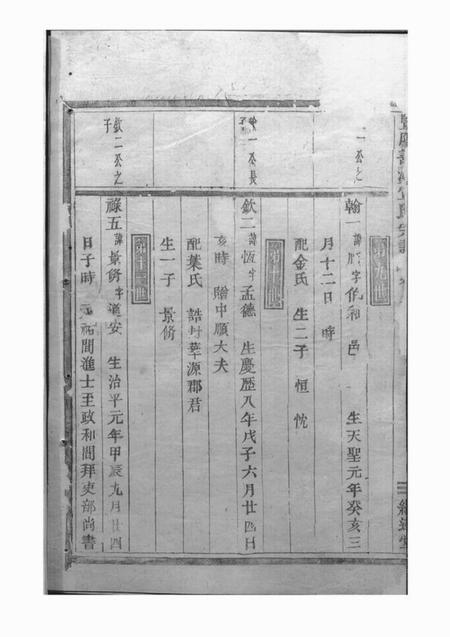 一公之
翰一諱 字侃和邑 生天聖元年癸亥三
月十二日 時
配金氏 生二子 恒 忱
一公長
子
欽二諱恆字孟德 生慶歷八年戊子六月廿四日
亥時 贈中順大夫
配葉氏 誥封華源郡君
生一子 景脩
欽二公之
子
祿五諱景脩字道安 生治平元年甲辰九月廿四
日子時 元祐間進士至政和間拜吏部尚書